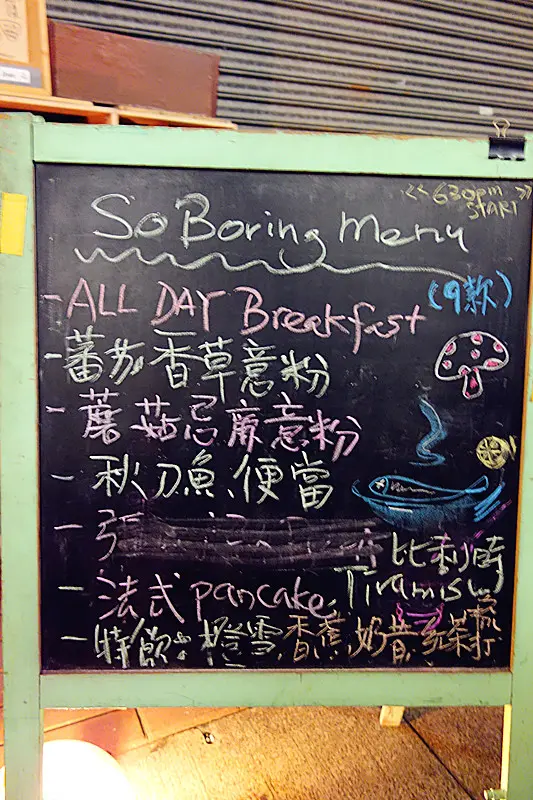 << 630pm >>
START
So Boring Menu
- ALL DAY Breakfast (9款)
- 蕃茄香草意粉
- 蘑菇忌廉意粉
- 秋刀魚便當
比利時
- 法式 pancake, Tiramisu
- 特飲: 橙雪, 香蕉奶昔,
梳打